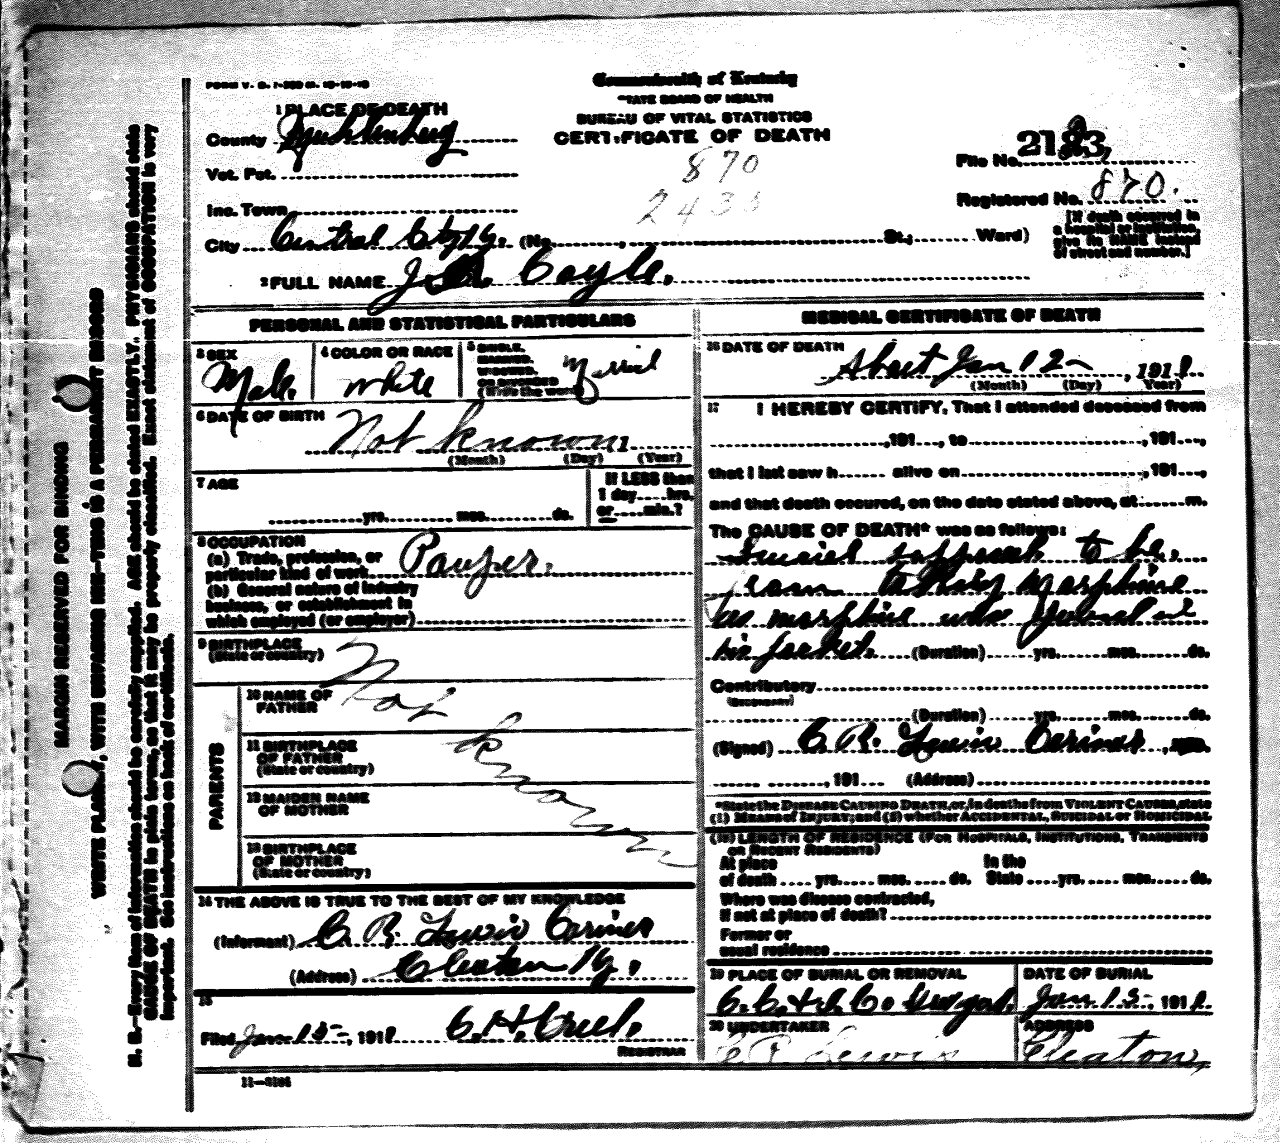 FORM V. S.
Commonwealth of Kentucky
STATE BOARD OF HEALTH
BUREAU OF VITAL STATISTICS
CERTIFICATE OF DEATH
1 PLACE OF DEATH
County Muhlenberg
Vot. Pct.
Inc. Town
City Central City Ky. (No. , St.; Ward)
870
243
File No.
Registered No. 870.
[If death occurred in
a hospital or institution,
give its NAME instead
of street and number.]
2 FULL NAME Coyle.
PERSONAL AND STATISTICAL PARTICULARS
3 SEX
Male.
4 COLOR OR RACE
white
5 SINGLE,
MARRIED,
WIDOWED,
OR DIVORCED
(Write the word)
6 DATE OF BIRTH
Not known
(Month) (Day) (Year)
7 AGE
yrs. mos. ds.
If LESS than
1 day hrs.
or min.?
8 OCCUPATION
(a) Trade, profession, or
particular kind of work Pauper.
(b) General nature of industry
business, or establishment in
which employed (or employer)
9 BIRTHPLACE
(State or country)
Not known
PARENTS
10 NAME OF
FATHER
11 BIRTHPLACE
OF FATHER
(State or country)
12 MAIDEN NAME
OF MOTHER
13 BIRTHPLACE
OF MOTHER
(State or country)
14 THE ABOVE IS TRUE TO THE BEST OF MY KNOWLEDGE
(Informant) C. R. Lewis Coriner
(Address) Cleaton Ky.
15
Filed 191 
REGISTRAR
11-3184
MEDICAL CERTIFICATE OF DEATH
16 DATE OF DEATH
About Jan 12 , 191
(Month) (Day) Year)
17 I HEREBY CERTIFY, That I attended deceased from
,191 , to ,191 ,
that I last saw h alive on ,191 ,
and that death occured, on the date stated above, at m.
The CAUSE OF DEATH* was as follows:
to be.
from taking Morphine
as morphine was found in
his pocket. (Duration) yrs. mos. ds.
Contributory
(SECONDARY)
(Duration) yrs. mos. ds.
(Signed) C. R. Lewis Coriner
, 191 (Address)
*State the DISEASE CAUSING DEATH, or, in deaths from VIOLENT CAUSES, state
(1) MEANS OF INJURY; and (2) whether ACCIDENTAL, SUICIDAL or HOMICIDAL
(18) LENGTH OF RESIDENCE (FOR HOSPITALS, INSTITUTIONS, TRANSIENTS
OR RECENT RESIDENTS)
At place In the
of death yrs. mos. ds. State yrs. mos. ds.
Where was disease contracted,
if not at place of death?
Former or
usual residence
19 PLACE OF BURIAL OR REMOVAL
DATE OF BURIAL
Jan 15 , 191
20 UNDERTAKER
C R Lewis
ADDRESS
Cleaton,
MARGIN RESERVED FOR BINDING
WRITE PLAINLY, WITH UNFADING INK—THIS IS A PERMANENT RECORD
N. B.—Every item of information should be carefully supplied. AGE should be stated EXACTLY. PHYSICIANS should state
CAUSE OF DEATH in plain terms, so that it may be properly classified. Exact statement of OCCUPATION is very
important. See instructions on back of certificate.